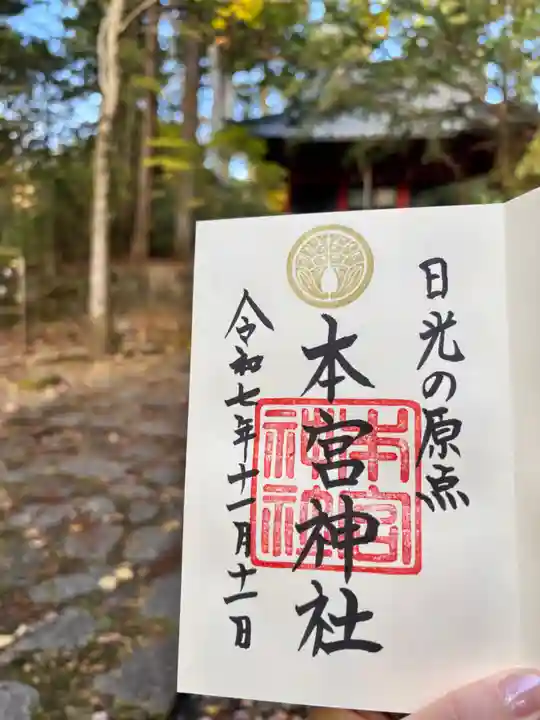 日光の原点
本宮神社
本宮
神社
令和七年十一月十一日